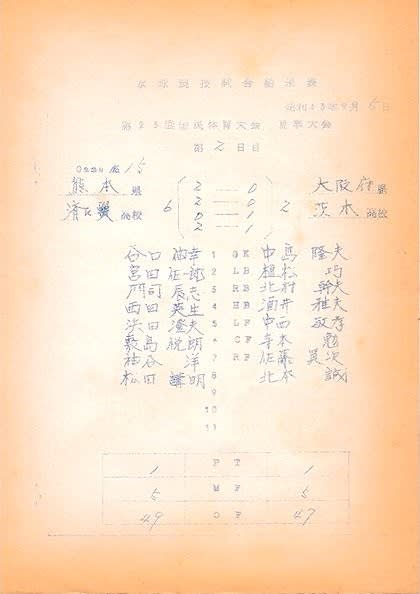 水球競技試合記録表
昭和43年9月5日
第23回国民体育大会 夏季大会
第2日目
Game No. 15
熊本県 2 — 0 大阪府県
済々黌高校 6 2 — 0 2 茨木高校
0 — 1
2 — 1
谷口 1 GK 中島 隆夫
宮田 征一郎 2 LB 植松 巧
門司 辰志 3 RB 北村 幹夫
西田 英生 4 HB 酒井 雅夫
浜田 澄夫 5 LF 中西 敏孝
敷島 悦朗 6 CF 寺本 勉
祐谷 洋 7 RF 佐藤 英次
松田 講明 8 北本 誠
9
10
11
1 PT 1
5 MF 5
49 CF 47